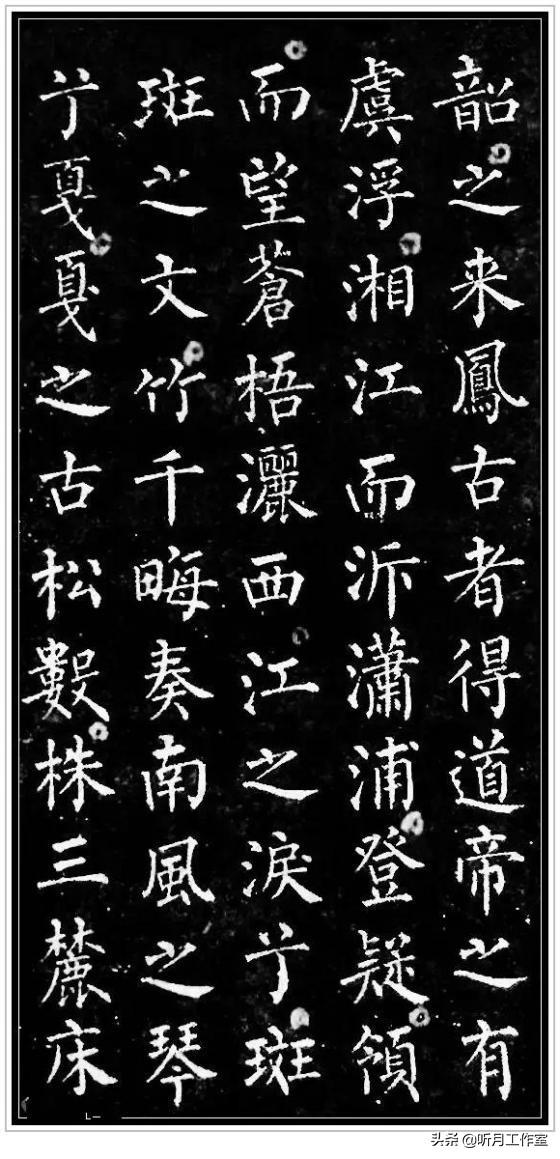 韶之来鳳古者得道帝之有
虞浮湘江而泝瀟浦登疑領
而望蒼梧灑西江之淚兮斑
斑之文竹千畮奏南風之琴
兮戛戛之古松數株三麓床
头条 @听月工作室